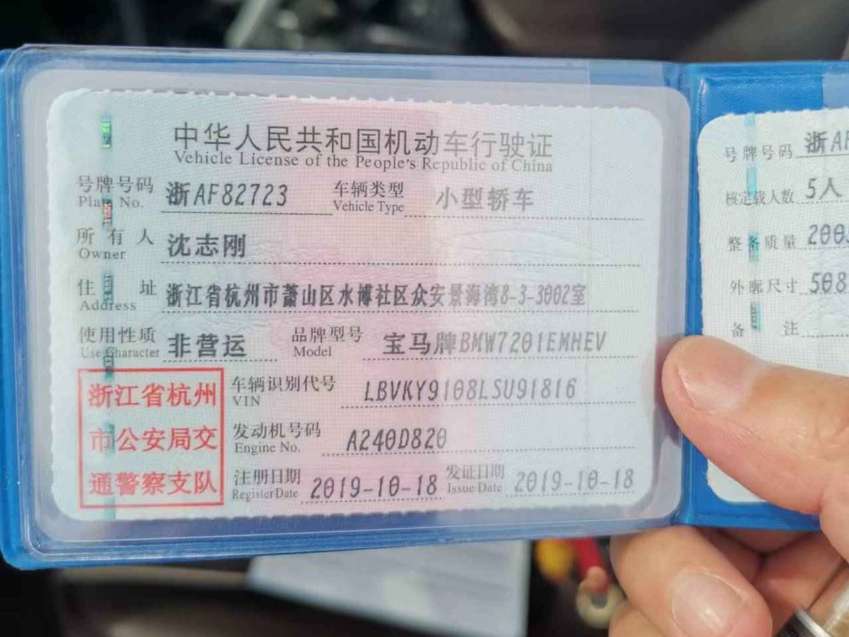 中华人民共和国机动车行驶证
Vehicle License of the People's Republic of China
号牌号码 浙AF82723 车辆类型 小型轿车
Plate No. Vehicle Type
所有人 沈志刚
Owner
住址 浙江省杭州市萧山区水博社区众安景海湾8-3-3002室
Address
使用性质 非营运 品牌型号 宝马牌BMW7201EMHEV
Use Character Model
浙江省杭州
市公安局交
通警察支队
车辆识别代号 LBVKY9108LSU91816
VIN
发动机号码 A240D820
Engine No.
注册日期 2019-10-18 发证日期 2019-10-18
Register Date Issue Date
号牌号码 浙AF
核定载人数 5人
整备质量 200
外廓尺寸 508
备注